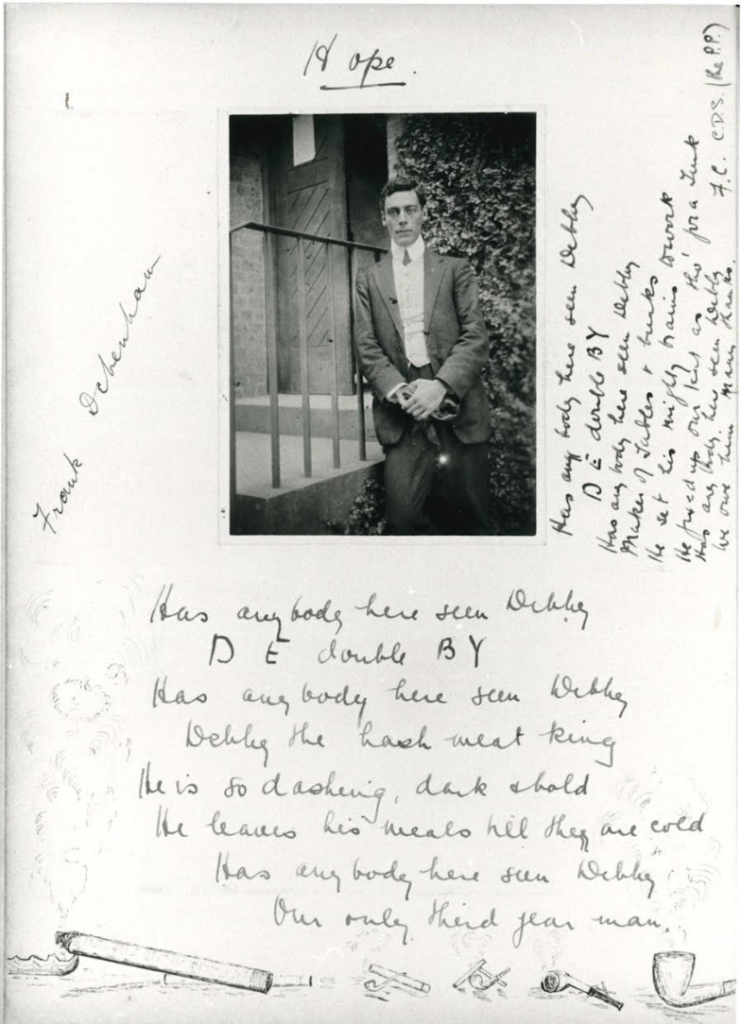 Hope.
Frank Debenham
Has any body here seen Debby
D E double B Y
Has any body here seen Debby
Maker of Tables & trucks
He set his mighty brains to work
He fixed up our kit as tho' for a
Has any body here seen Debby
We owe him Many thanks.
F.C. C.D.S. (the P.P.)
Has any body here seen Debby
D E double B Y
Has any body here seen Debby
Debby the hash meat king
He is so dashing, dark & bold
He leaves his meals till they are cold
Has any body here seen Debby
Our only third year man.